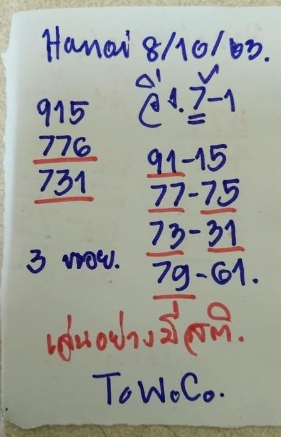 Hanoi 8/10/63.
วิ่ง. 7-1
915
776
731
91-15
77-75
73-31
79-61.
3 หลอย.
เล่นอย่างมีสติ.
ToWoCo.